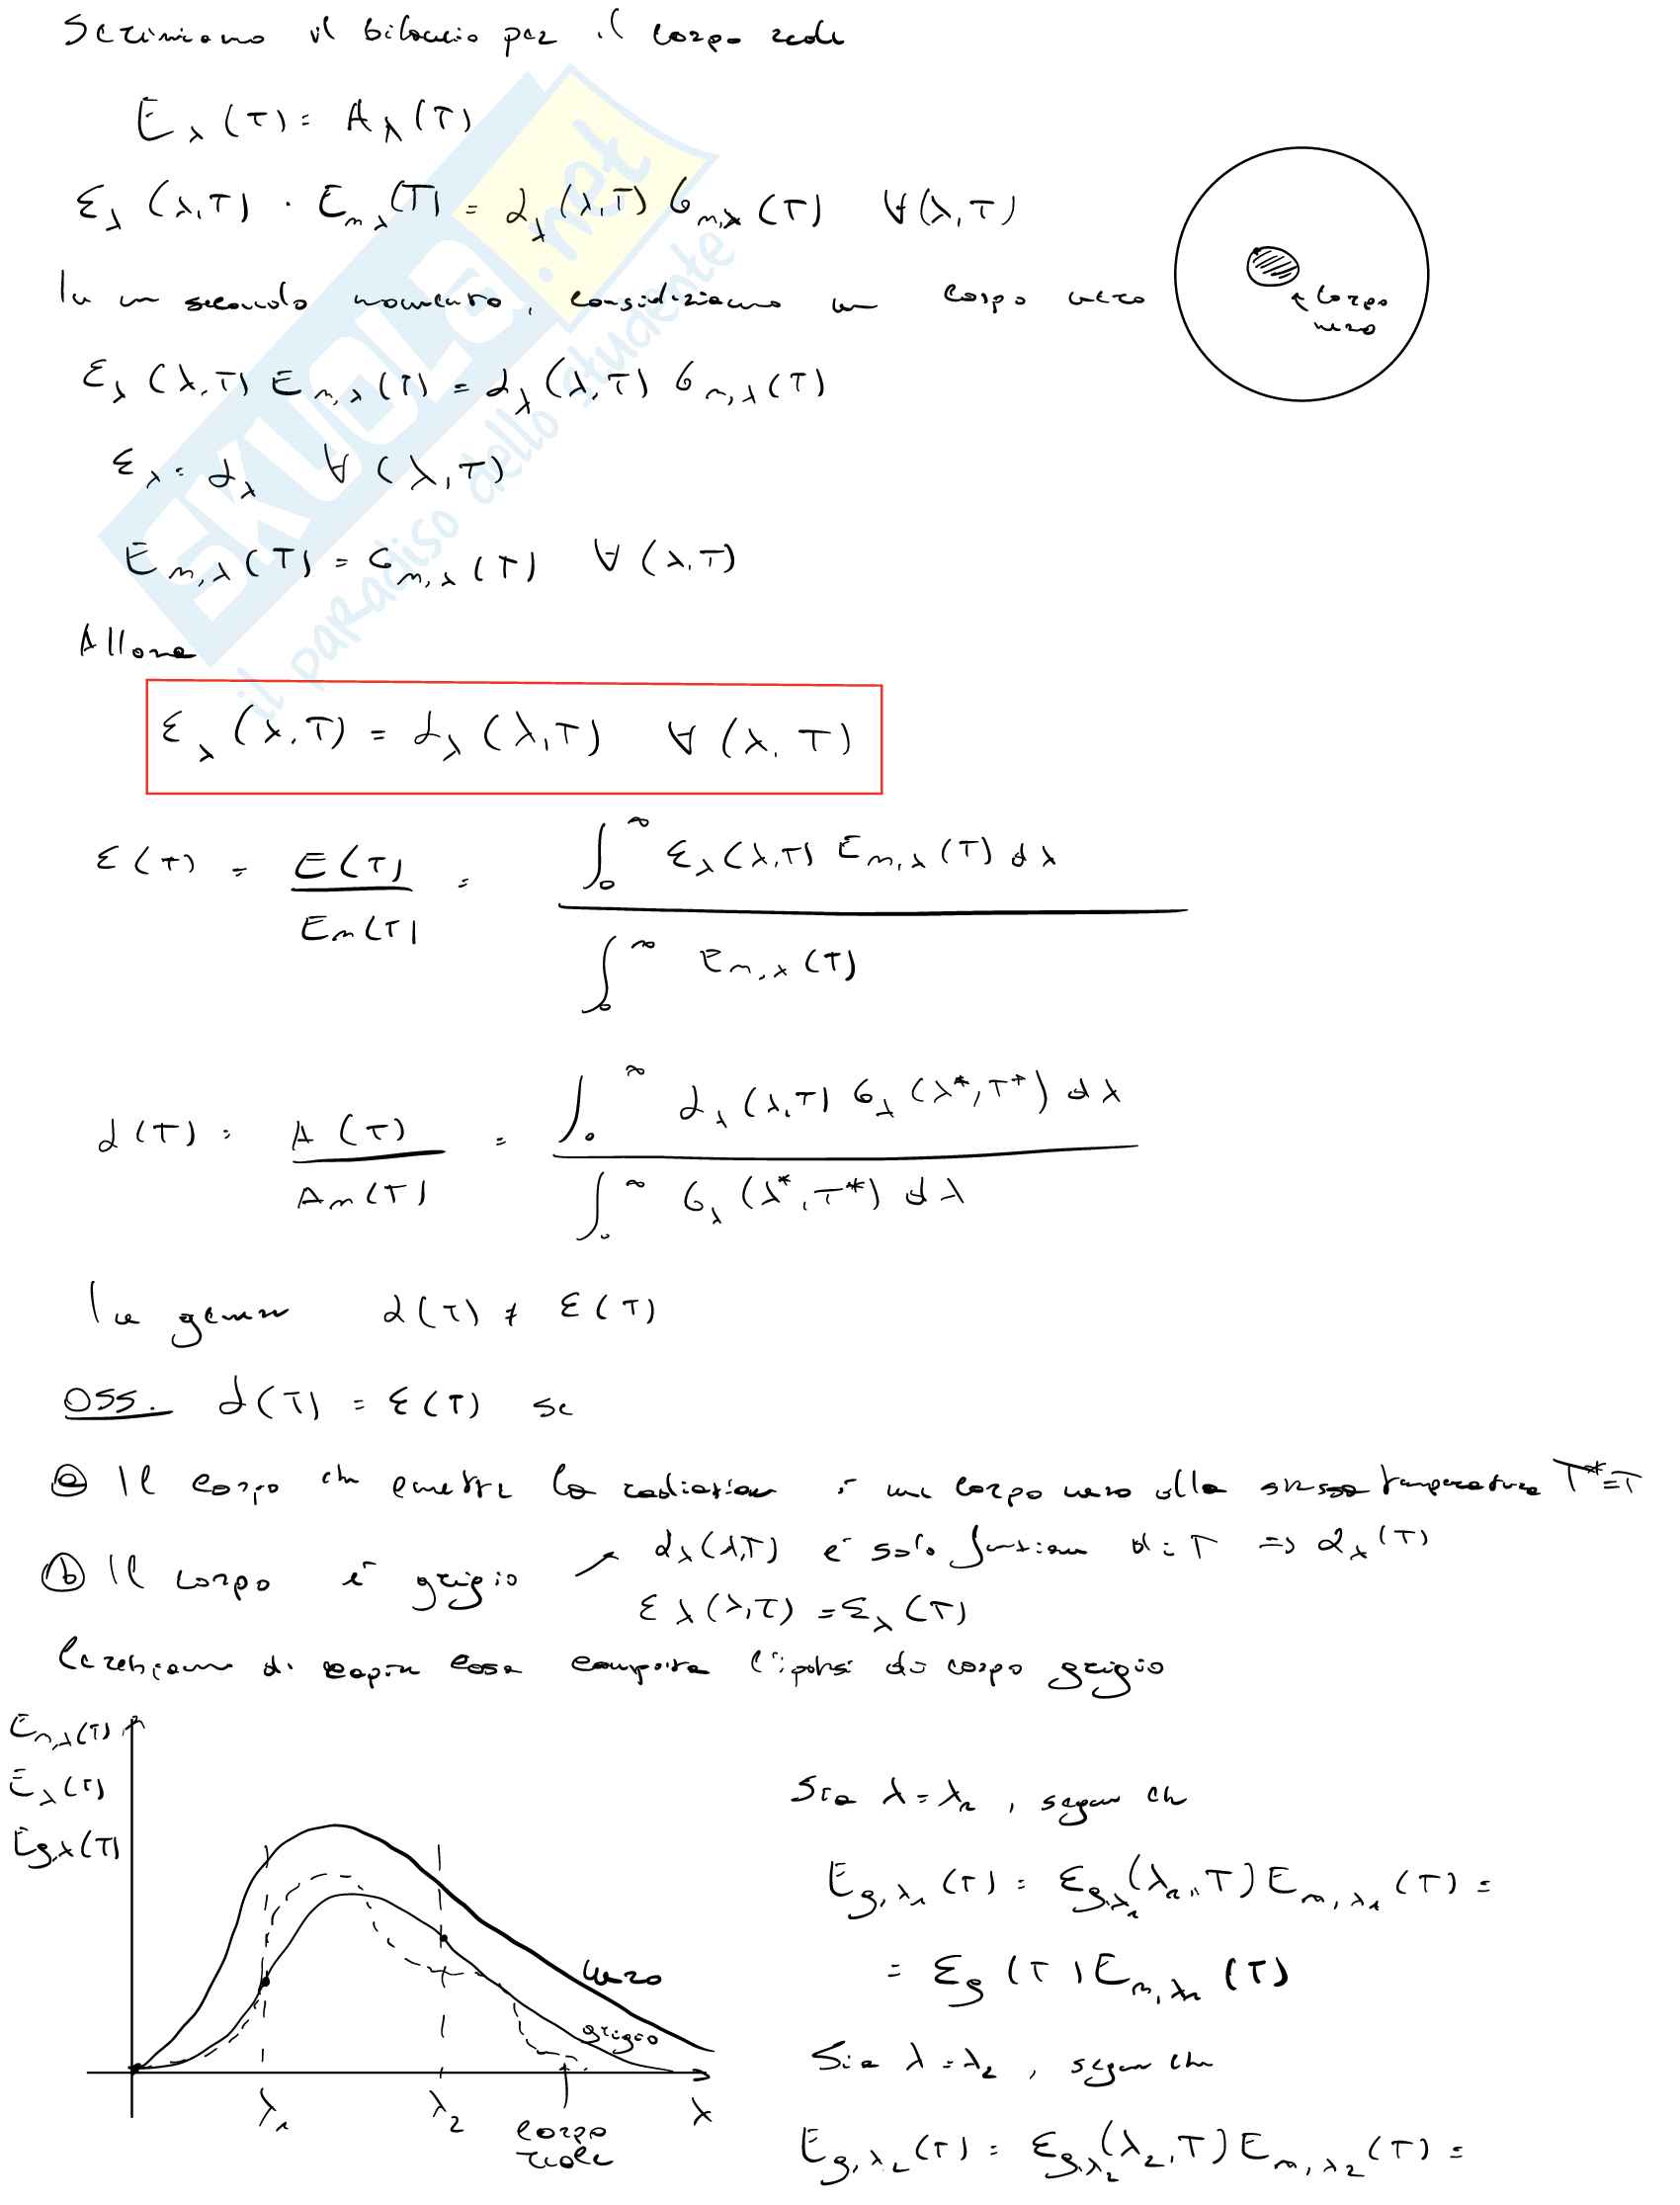 Scriviamo il bilancio per il corpo reale
E_λ (T) = A_λ (T)
ε_λ (λ,T) · E_{n,λ}(T) = α_λ (λ,T) G_{n,λ} (T) ∀(λ,T)
In un secondo momento, consideriamo un corpo nero
corpo
nero
ε_λ (λ,T) E_{n,λ} (T) = α_λ (λ,T) G_{n,λ} (T)
ε_λ = α_λ ∀ (λ,T)
E_{n,λ} (T) = G_{n,λ} (T) ∀ (λ,T)
Allora
ε_λ (λ,T) = α_λ (λ,T) ∀ (λ,T)
ε(T) = E(T) / En(T) = ∫_0^∞ ε_λ(λ,T) E_{n,λ}(T) dλ / ∫_0^∞ E_{n,λ}(T)
α(T) = A(T) / An(T) = ∫_0^∞ α_λ(λ,T) G_λ(λ*,T*) dλ / ∫_0^∞ G_λ(λ*,T*) dλ
In genere α(T) ≠ ε(T)
OSS. α(T) = ε(T) se
ⓐ Il corpo che emette la radiazione è un corpo nero alla stessa temperatura T*=T
ⓑ Il corpo è grigio ↗ α_λ(λ,T) è solo funzione di T => α_λ(T)
ε_λ(λ,T) = ε_λ(T)
Cerchiamo di capire cosa comporta l'ipotesi di corpo grigio
E_{n,λ}(T)
E_λ(T)
E_{g,λ}(T)
nero
grigio
λ_1
λ_2
λ
corpo
reale
Sia λ = λ_1, segue che
E_{g,λ_1}(T) = ε_{g,λ_1}(λ_1,T) E_{n,λ_1}(T) =
= ε_g(T) E_{n,λ_1}(T)
Sia λ = λ_2, segue che
E_{g,λ_2}(T) = ε_{g,λ_2}(λ_2,T) E_{n,λ_2}(T) =
SKUOLA.net
il paradiso dello studente